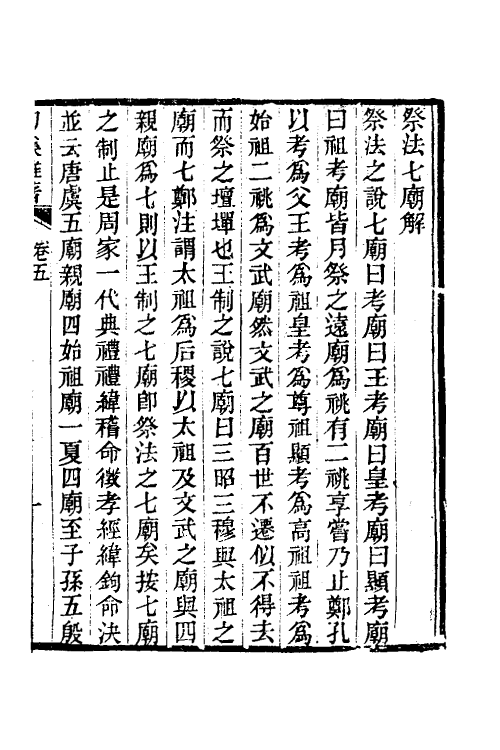 祭法七廟解
祭法之說七廟曰考廟曰王考廟曰皇考廟曰顯考廟
曰祖考廟皆月祭之遠廟爲祧有二祧享嘗乃止鄭孔
以考爲父王考爲祖皇考爲曾祖顯考爲高祖祖考爲
始祖二祧爲文武廟然文武之廟百世不遷似不得去
而祭之壇墠也王制之說七廟曰三昭三穆與太祖之
廟而七鄭注謂太祖爲后稷以太祖及文武之廟與四
親廟爲七則以王制之七廟卽祭法之七廟矣按七廟
之制止是周家一代典禮禮緯稽命徵孝經緯鉤命決
並云唐虞五廟親廟四始祖廟一夏四廟至子孫五殷
卷五
一